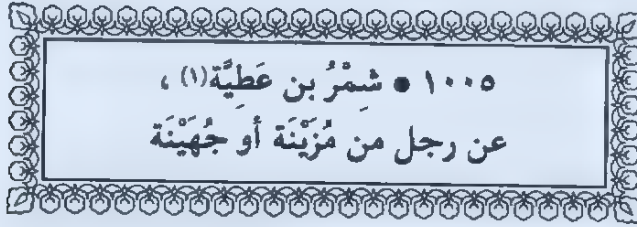 ١٠٠٥ • شِمْرُ بن عَطِيَّة(١) ،
عن رجل من مُزَيْنَة أو جُهَيْنَة